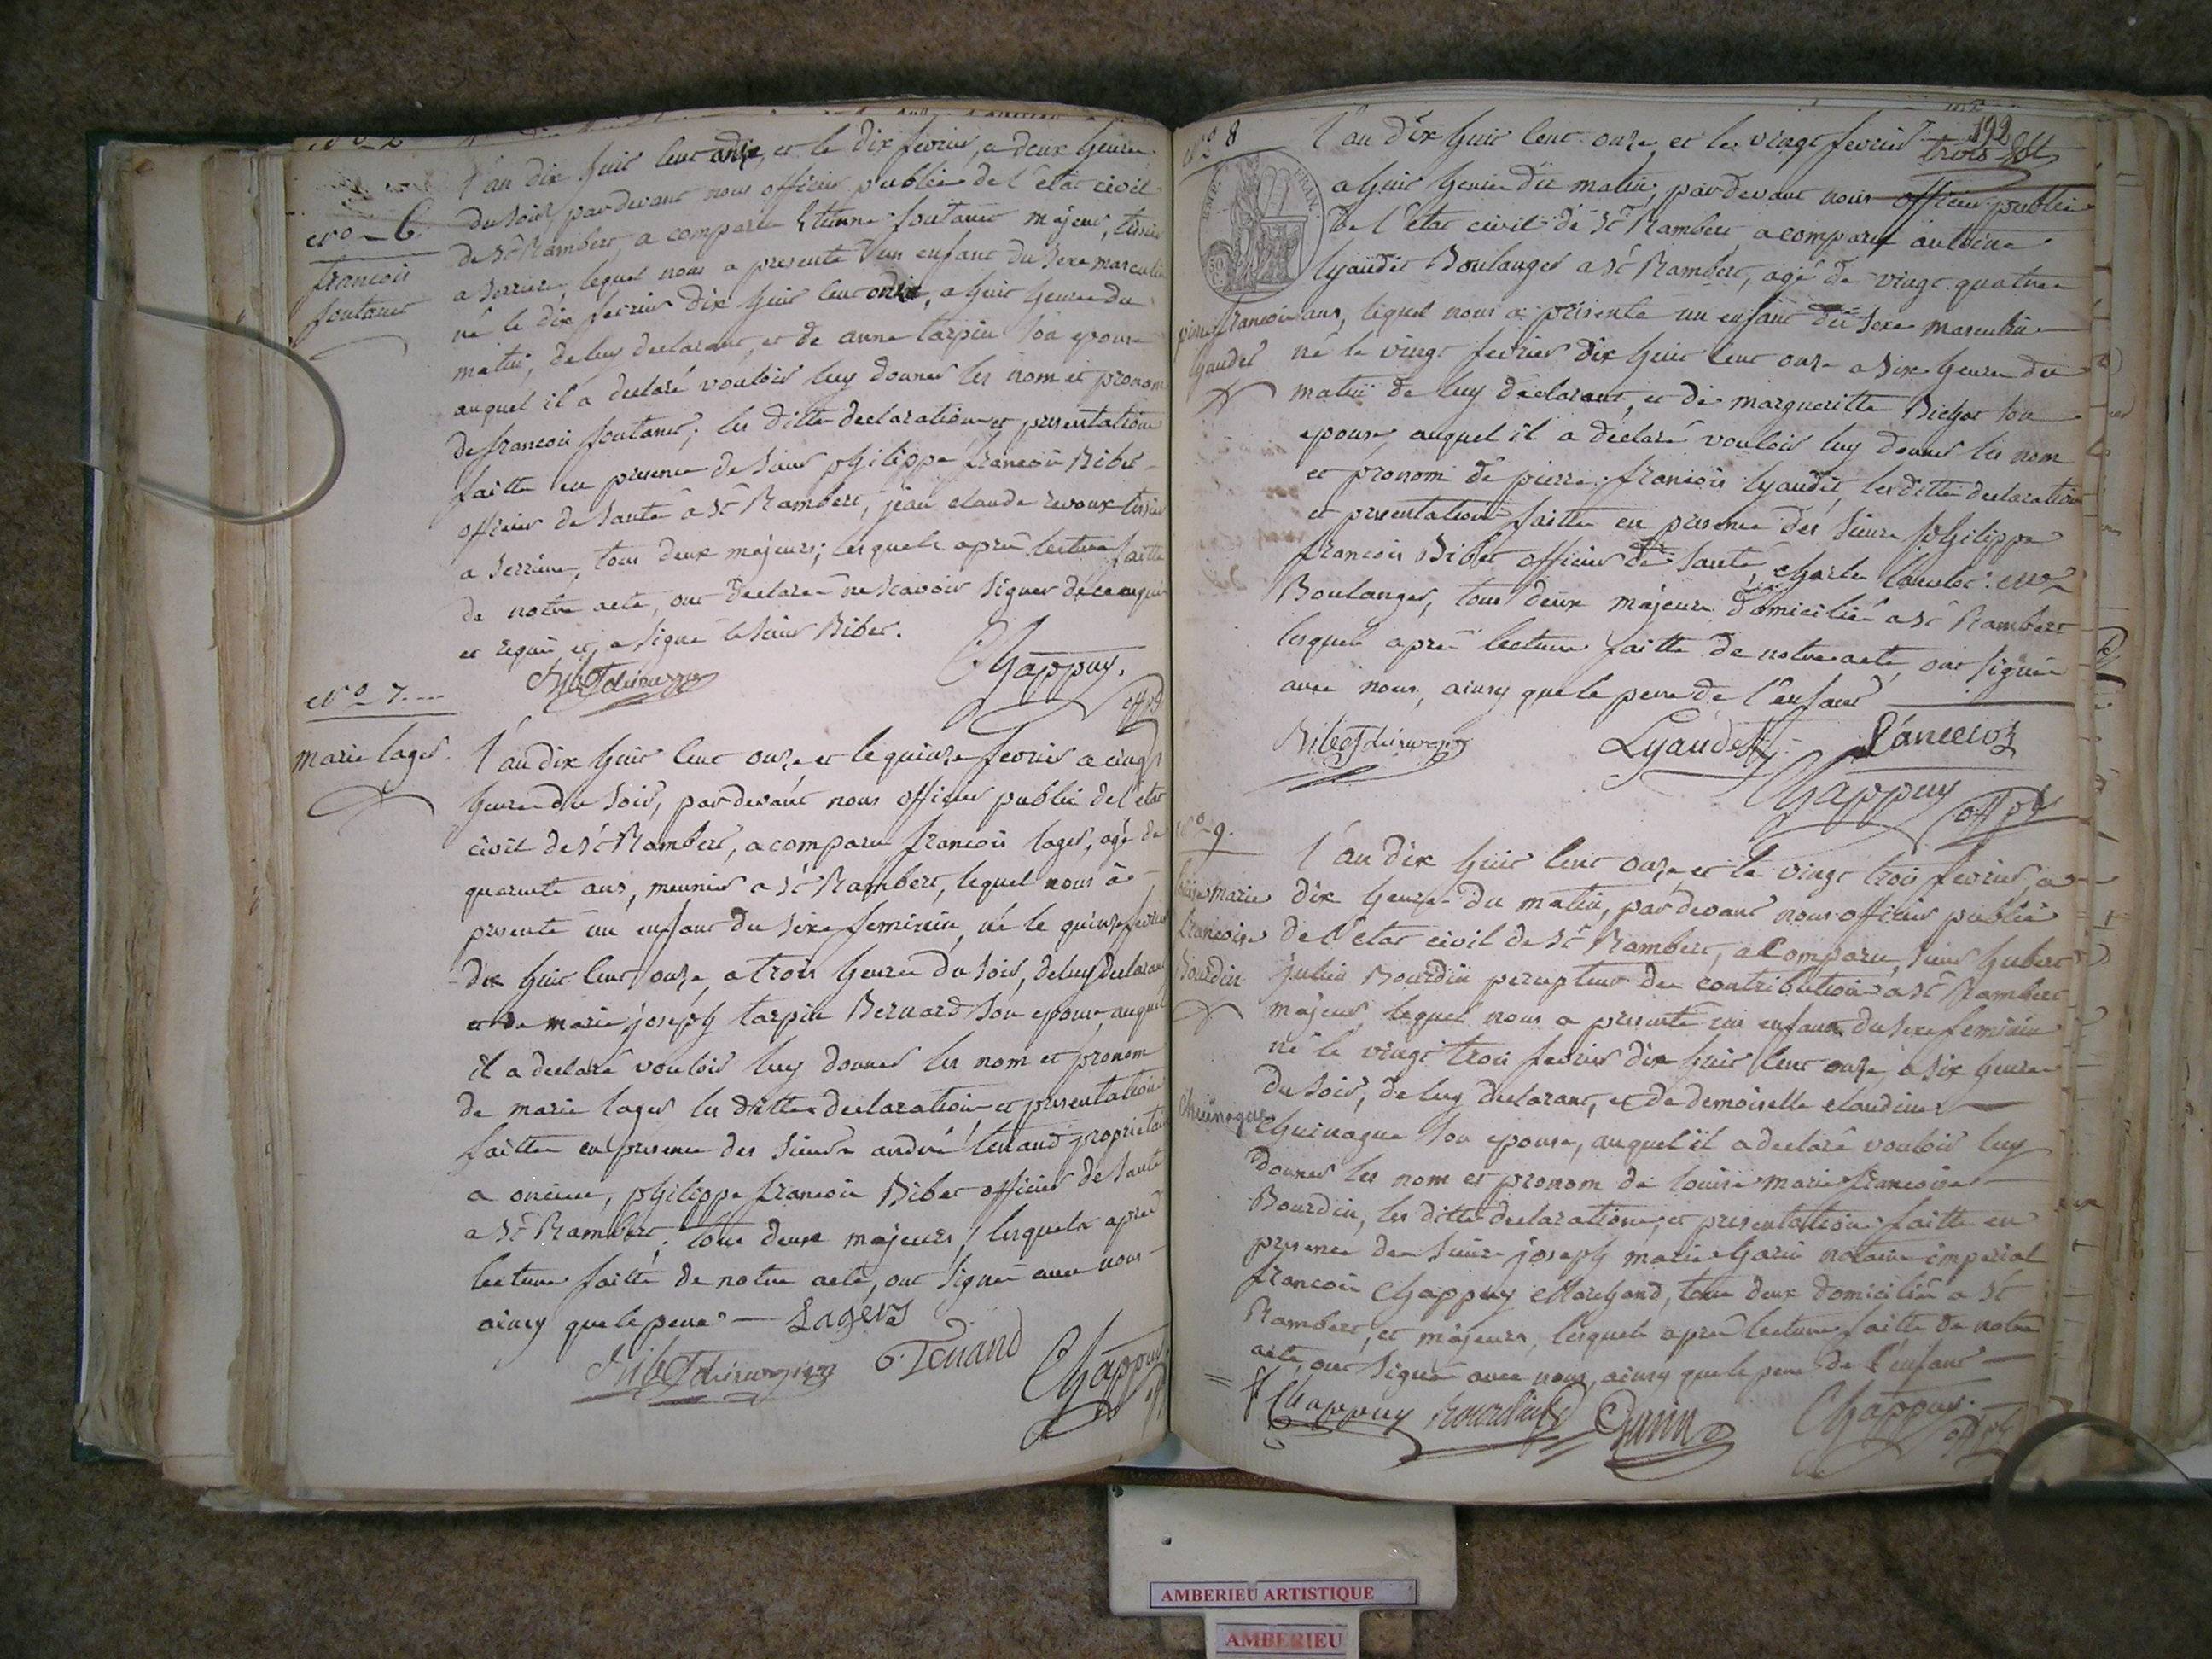 No 6.
francois
fontanet
l'an dix huit cent onze, et le dix fevrier, a deux heures
du soir, pardevant nous officier public de l'etat civil
de St Rambert, a comparu Etienne fontanet majeur, tissier
a serriere, lequel nous a presenté un enfant du sexe masculin
né le dix fevrier dix huit cent onze, a huit heures du
matin, de luy declarant, et de anne tarpin son epouse
auquel il a declaré vouloir luy donner les nom et pronom
de francois fontanet; les ditte declaration et presentation
faitte en presence de sieur philippe francois Ribet
officier de santé a St Rambert, jean claude revoux tissier
a serriere, tous deux majeurs; lesquels apres lecture faitte
de notre acte, ont declaré ne scavoir signer de ce enquis
et requis et a signé le sieur Ribet.
Ribet chirurgien
Chappuy.
off pb
No 7
marie lager
l'an dix huit cent onze et le quinze fevrier a cinq
heures du soir, pardevant nous officier public de l'etat
civil de St Rambert, a comparu francois lager, agé de
quarante ans, meunier a St Rambert, lequel nous a
presenté un enfant du sexe feminin, né le quinze fevrier
dix huit cent onze, a trois heures du soir, de luy declarant
et de marie joseph tarpin Bernard son epouse, auquel
il a declaré vouloir luy donner les nom et pronom
de marie lager les dittes declaration et presentation
faitte en presence des sieurs andré tenand proprietaire
a oncieu, philippe francois Ribet officier de santé
a St Rambert, tous deux majeurs, lesquels apres
lecture faitte de notre acte, ont signé avec nous
ainsy que le pere Lager
Ribet chirurgien
Tenand
Chappuy
192
trois
No 8
EMP. FRAN.
pierre francois
lyaudet
l'an dix huit cent onze, et le vingt fevrier
a huit heures du matin, pardevant nous officier public
de l'etat civil de St Rambert, a comparu antoine
lyaudet Boulanger a St Rambert, agé de vingt quatre
ans, lequel nous a presenté un enfant du sexe masculin
né le vingt fevrier dix huit cent onze a six heures du
matin de luy declarant, et de margueritte Bichat son
epouse, auquel il a declaré vouloir luy donner les nom
et pronom de pierre francois lyaudet, les ditte declaration
et presentation faitte en presence des sieurs philippe
francois Ribet officier de santé, charle lancelot
Boulanger, tous deux majeurs domicilié a St Rambert
lesquels apres lecture faitte de notre acte, ont signé
avec nous, ainsy que le pere de l'enfant
Ribet chirurgien
Lyaudet
Lancelot
Chappuy
off pb
No 9.
louise marie
francoise
Bourdin
Chuinague
l'an dix huit cent onze et le vingt trois fevrier, a
dix heures du matin, pardevant nous officier public
de l'etat civil de St Rambert, a comparu, sieur hubert
julien Bourdin percepteur des contributions a St Rambert
majeur, lequel nous a presenté un enfant du sexe feminin
né le vingt trois fevrier dix huit cent onze, a six heures
du soir, de luy declarant, et de demoiselle claudine
Chuinague son epouse, auquel il a declaré vouloir luy
donner les nom et pronom de louise marie francoise
Bourdin, les ditte declaration, et presentation faitte en
presence des sieurs joseph marie Garin notaire imperial
francois Chappuy Marchand, tous deux domicilié a St
Rambert, et majeurs, lesquels apres lecture faitte de notre
acte, ont signé avec nous, ainsy que le pere de l'enfant
f Chappuy
Bourdin
Garin
Chappuy
off pb
AMBERIEU ARTISTIQUE
AMBERIEU